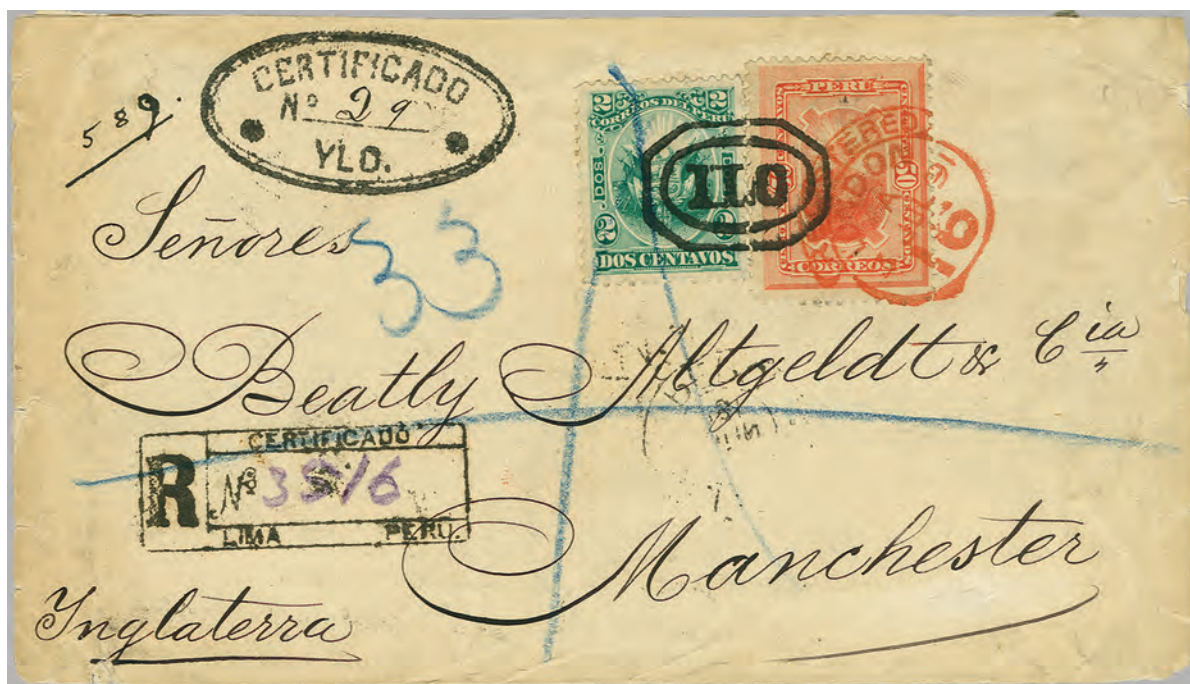 CERTIFICADO
Nº 29
YLO.
589.
2 2
CORREOS DEL PERU
DOS
2 2
DOS CENTAVOS
PERU
50
CORREOS
ILO
REGISTERED
LONDON
Señores
33
Beatly Altgeldt & Cia
R
CERTIFICADO
Nº 3516
LIMA PERU.
Manchester
Inglaterra